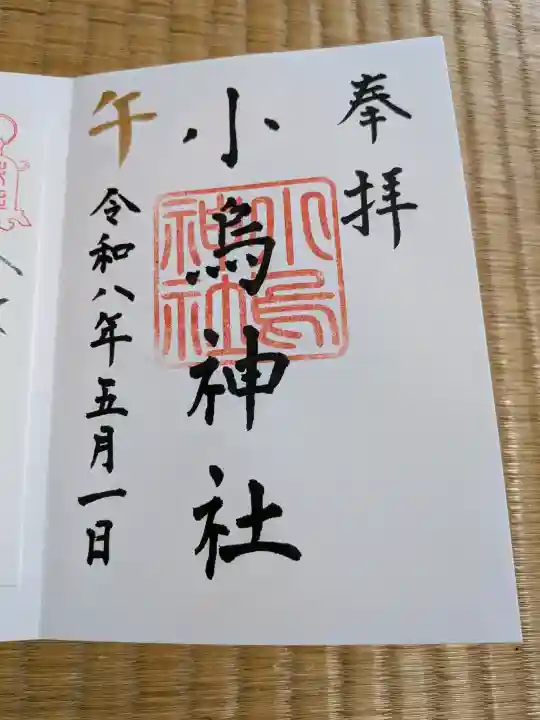 奉拝
小烏神社
小烏
神社
午
令和八年五月一日